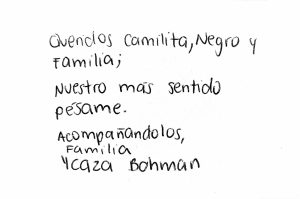 Queridos Camilita, Negro y
Familia;
Nuestro más sentido
pésame.
Acompañándolos,
Familia
Ycaza Bohman